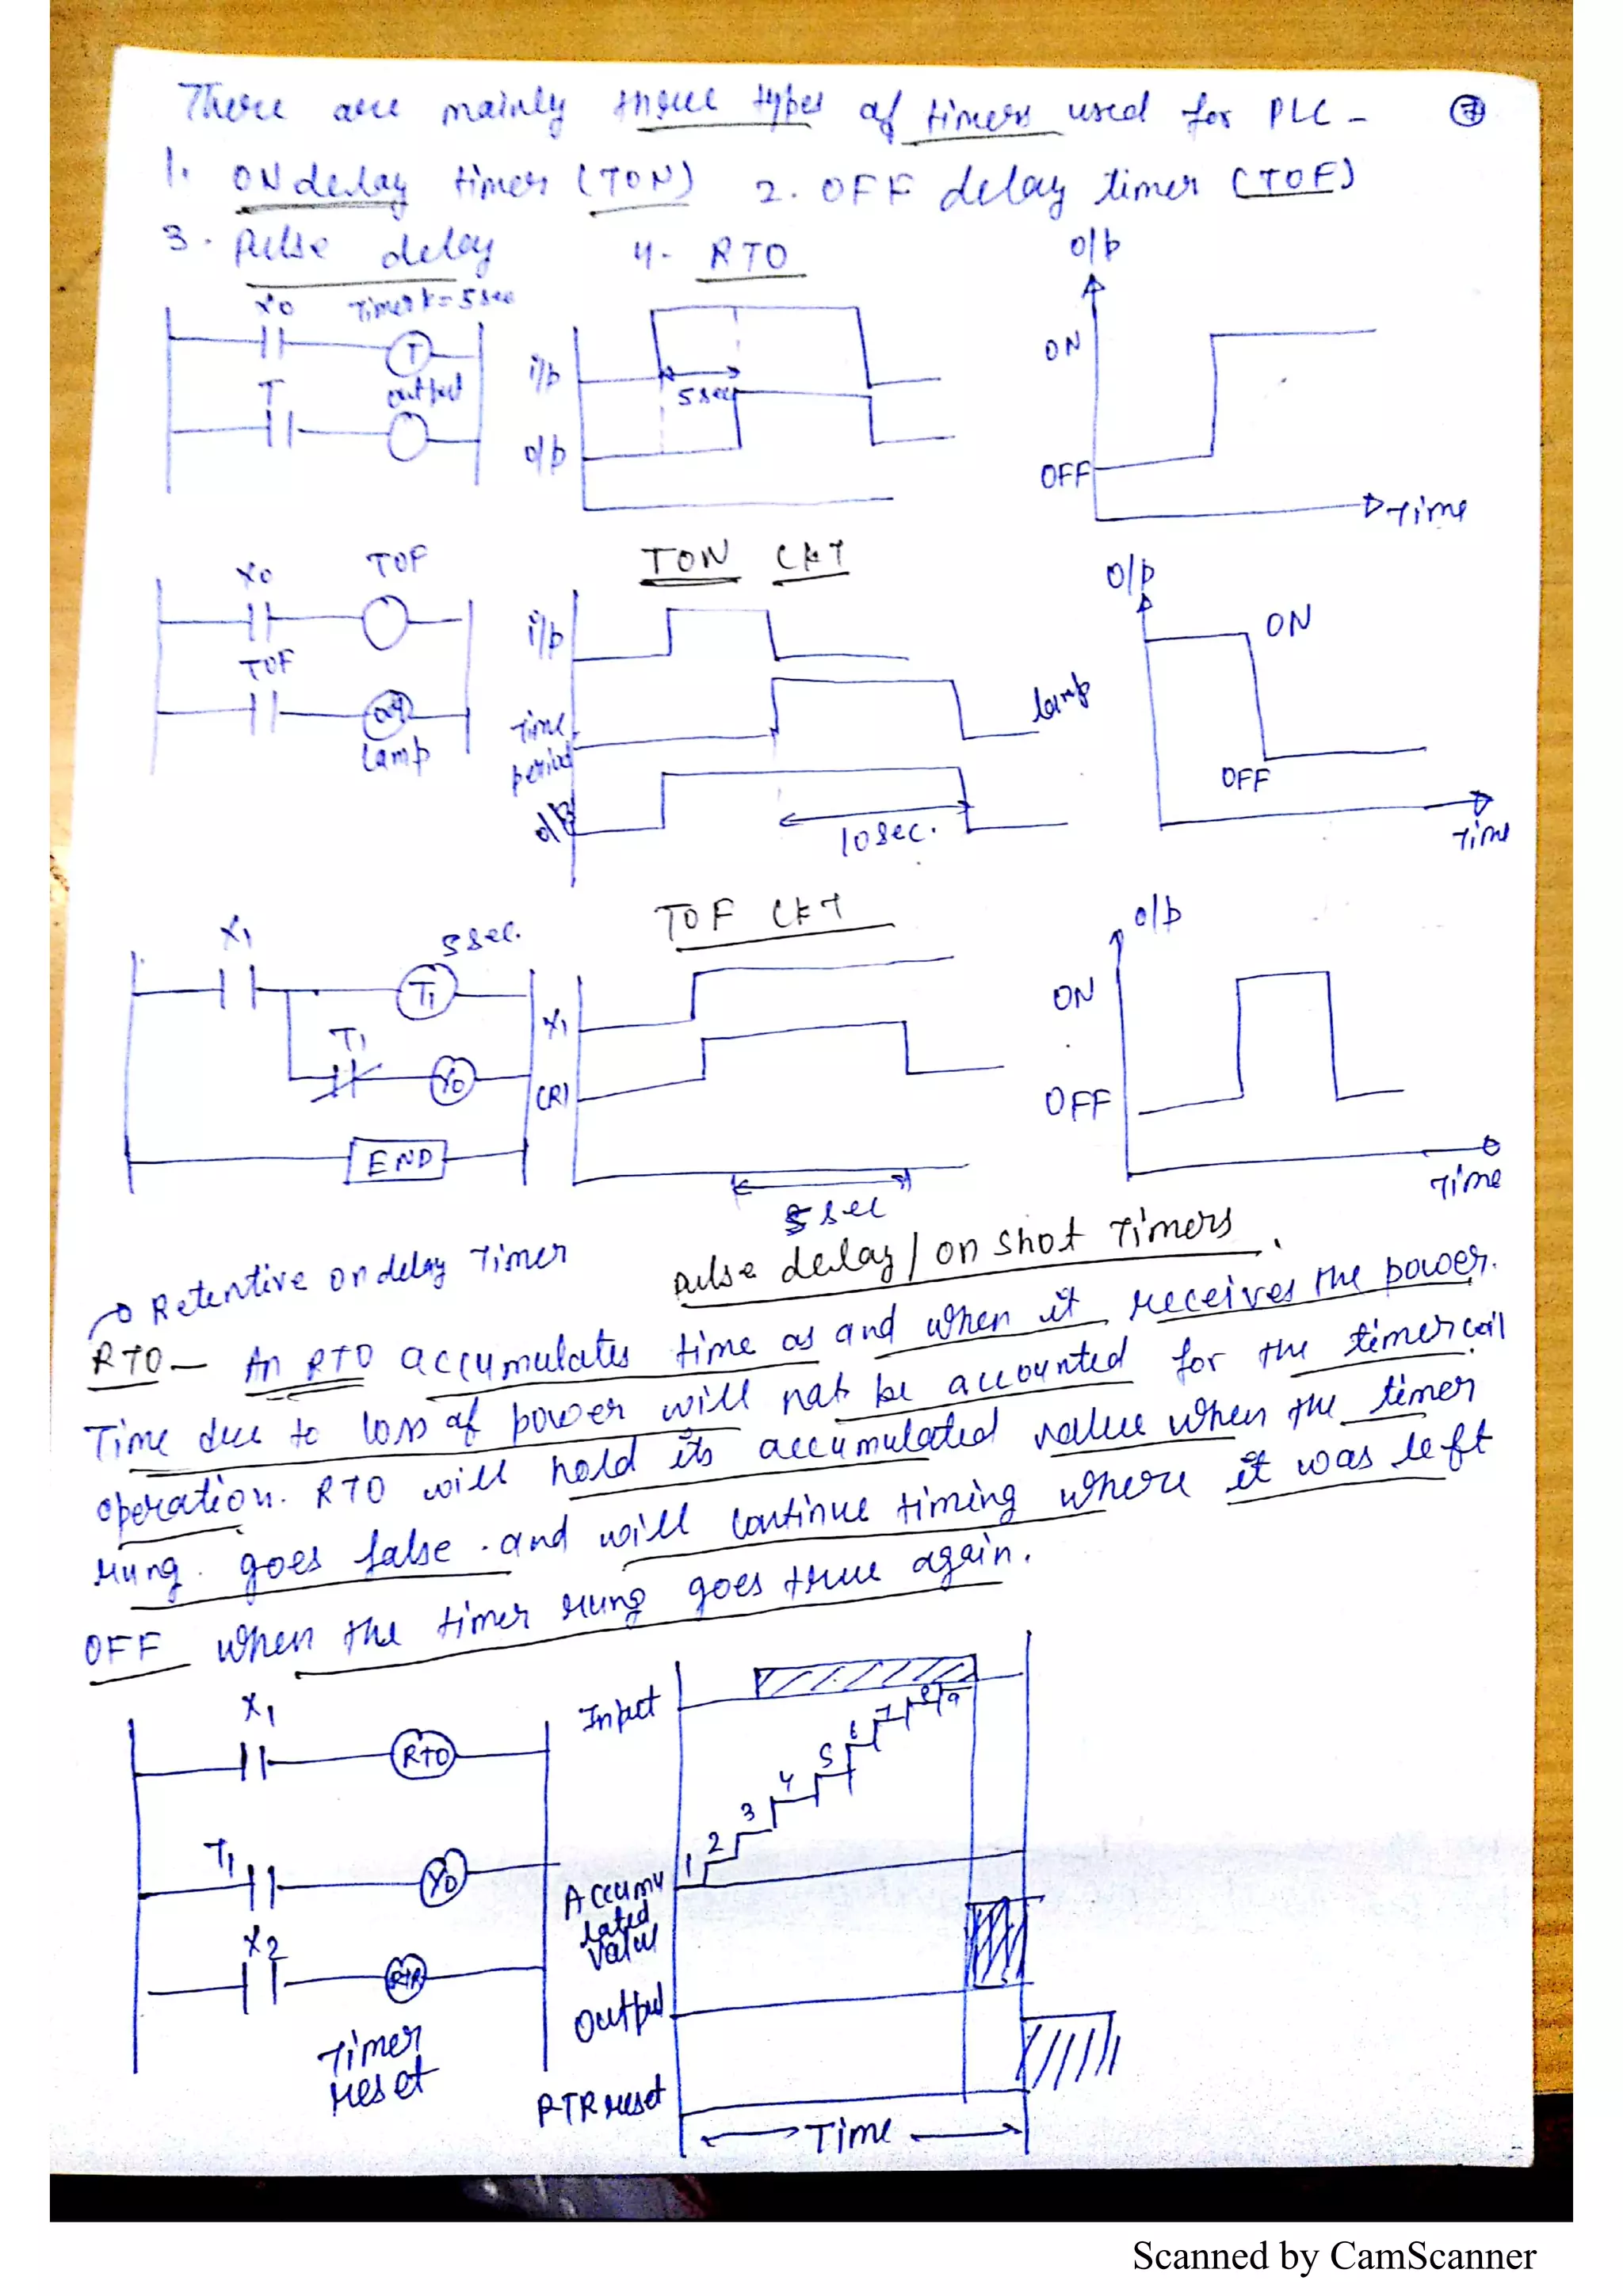 There are mainly three types of timers used for PLC - 7
1. ON delay timer (TON) 2. OFF delay timer (TOF)
3. Pulse delay 4. RTO
X0 Timer k=5sec
T
T output
i/p
5sec
o/p
o/p
ON
OFF
Time
TON CKT
X0 TOF
TOF
Lamp
i/p
Time period
lamp
o/p
10sec.
o/p
ON
OFF
Time
TOF CKT
X1 5sec.
T1
T1
Y0
END
X1
CR1
5sec
o/p
ON
OFF
Time
Pulse delay / on shot Timers.
Retentive on delay Timer
RTO — An RTO accumulates time as and when it receives the power.
Time due to loss of power will not be accounted for the timer coil
operation. RTO will hold its accumulated value when the timer
rung goes false. and will continue timing where it was left
OFF when the timer rung goes true again.
X1
RTO
T1
Y0
X2
RTR
Timer
reset
Input
1 2 3 4 5 6 7 8 9
Accumu
lated
value
Output
RTR reset
Time
Scanned by CamScanner